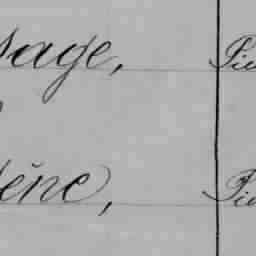 sage, Pie
ène, Pie